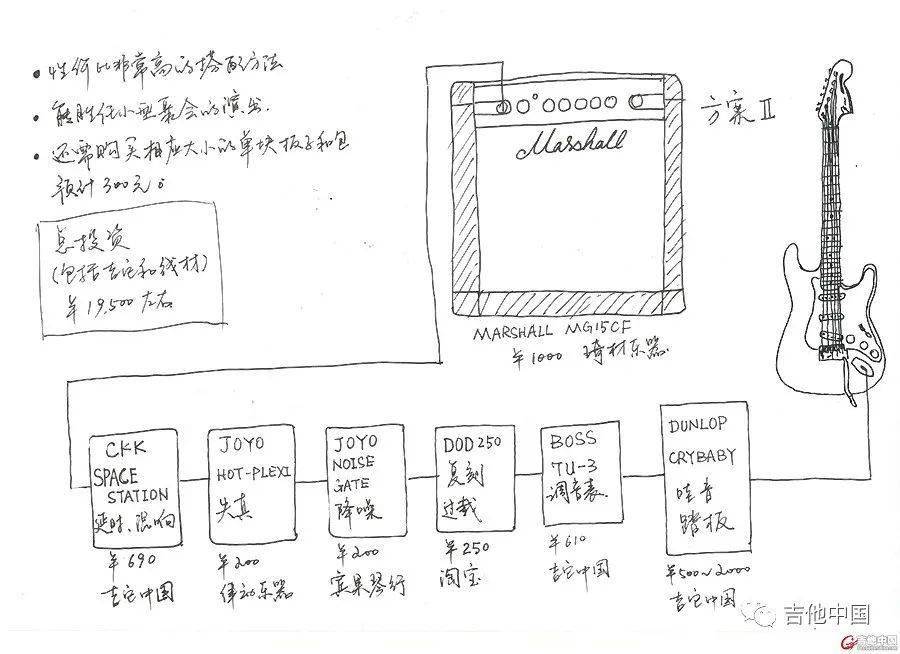 • 性价比非常高的搭配方法
• 能胜任小型聚会的演出.
• 还需购买相应大小的单块板子和包
预计300元。
总投资
(包括吉它和线材)
¥19,500左右
方案 II
Marshall
MARSHALL MG15CF
¥1000 琦材乐器
CKK
SPACE
STATION
延时、混响
¥690
吉它中国
JOYO
HOT-PLEXI
失真
¥200
伊动乐器
JOYO
NOISE
GATE
降噪
¥200
宾果琴行
DOD250
复刻
过载
¥250
淘宝
BOSS
TU-3
调音表
¥610
吉它中国
DUNLOP
CRYBABY
哇音
踏板
¥500~2000
吉它中国
吉他中国
吉他中国